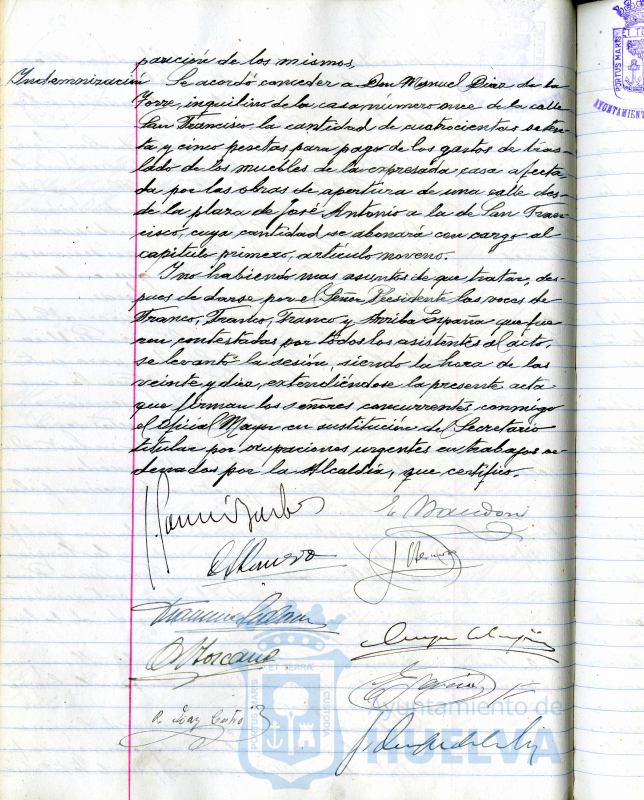 parición de los mismos.
Indemnización Se acordó conceder a Don Manuel Diaz de la
Torre, inquilino de la casa, número once de la calle
San Francisco, la cantidad de cuatrocientas seten-
ta y cinco pesetas para pago de los gastos de tras-
lado de los muebles de la expresada casa afecta-
da por las obras de apertura de una calle des-
de la plaza de José Antonio a la de San Fran-
cisco, cuya cantidad se abonará con cargo al
capítulo primero, artículo noveno.
Y no habiendo mas asuntos de que tratar, des-
pues de darse por el Señor Presidente las voces de
Franco, Franco, Franco y Arriba España que fue-
ron contestadas por todos los asistentes al acto,
se levantó la sesión, siendo la hora de las
veinte y diez, extendiéndose la presente acta
que firman los señores concurrentes conmigo
el Oficial Mayor en sustitución del Secretario
titular por ocupaciones urgentes en trabajos or-
denados por la Alcaldía, que certifico.
PORTUS MARIS
ET TERRÆ
CUSTODIA
Ayuntamiento de
HUELVA
PORTUS MARIS
AYUNTAMIEN